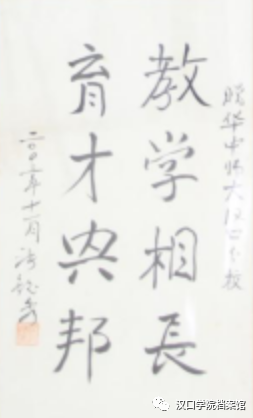 赠华中师大汉口分校
教学相長
育才兴邦
二〇〇六年十一月
汉口学院档案馆